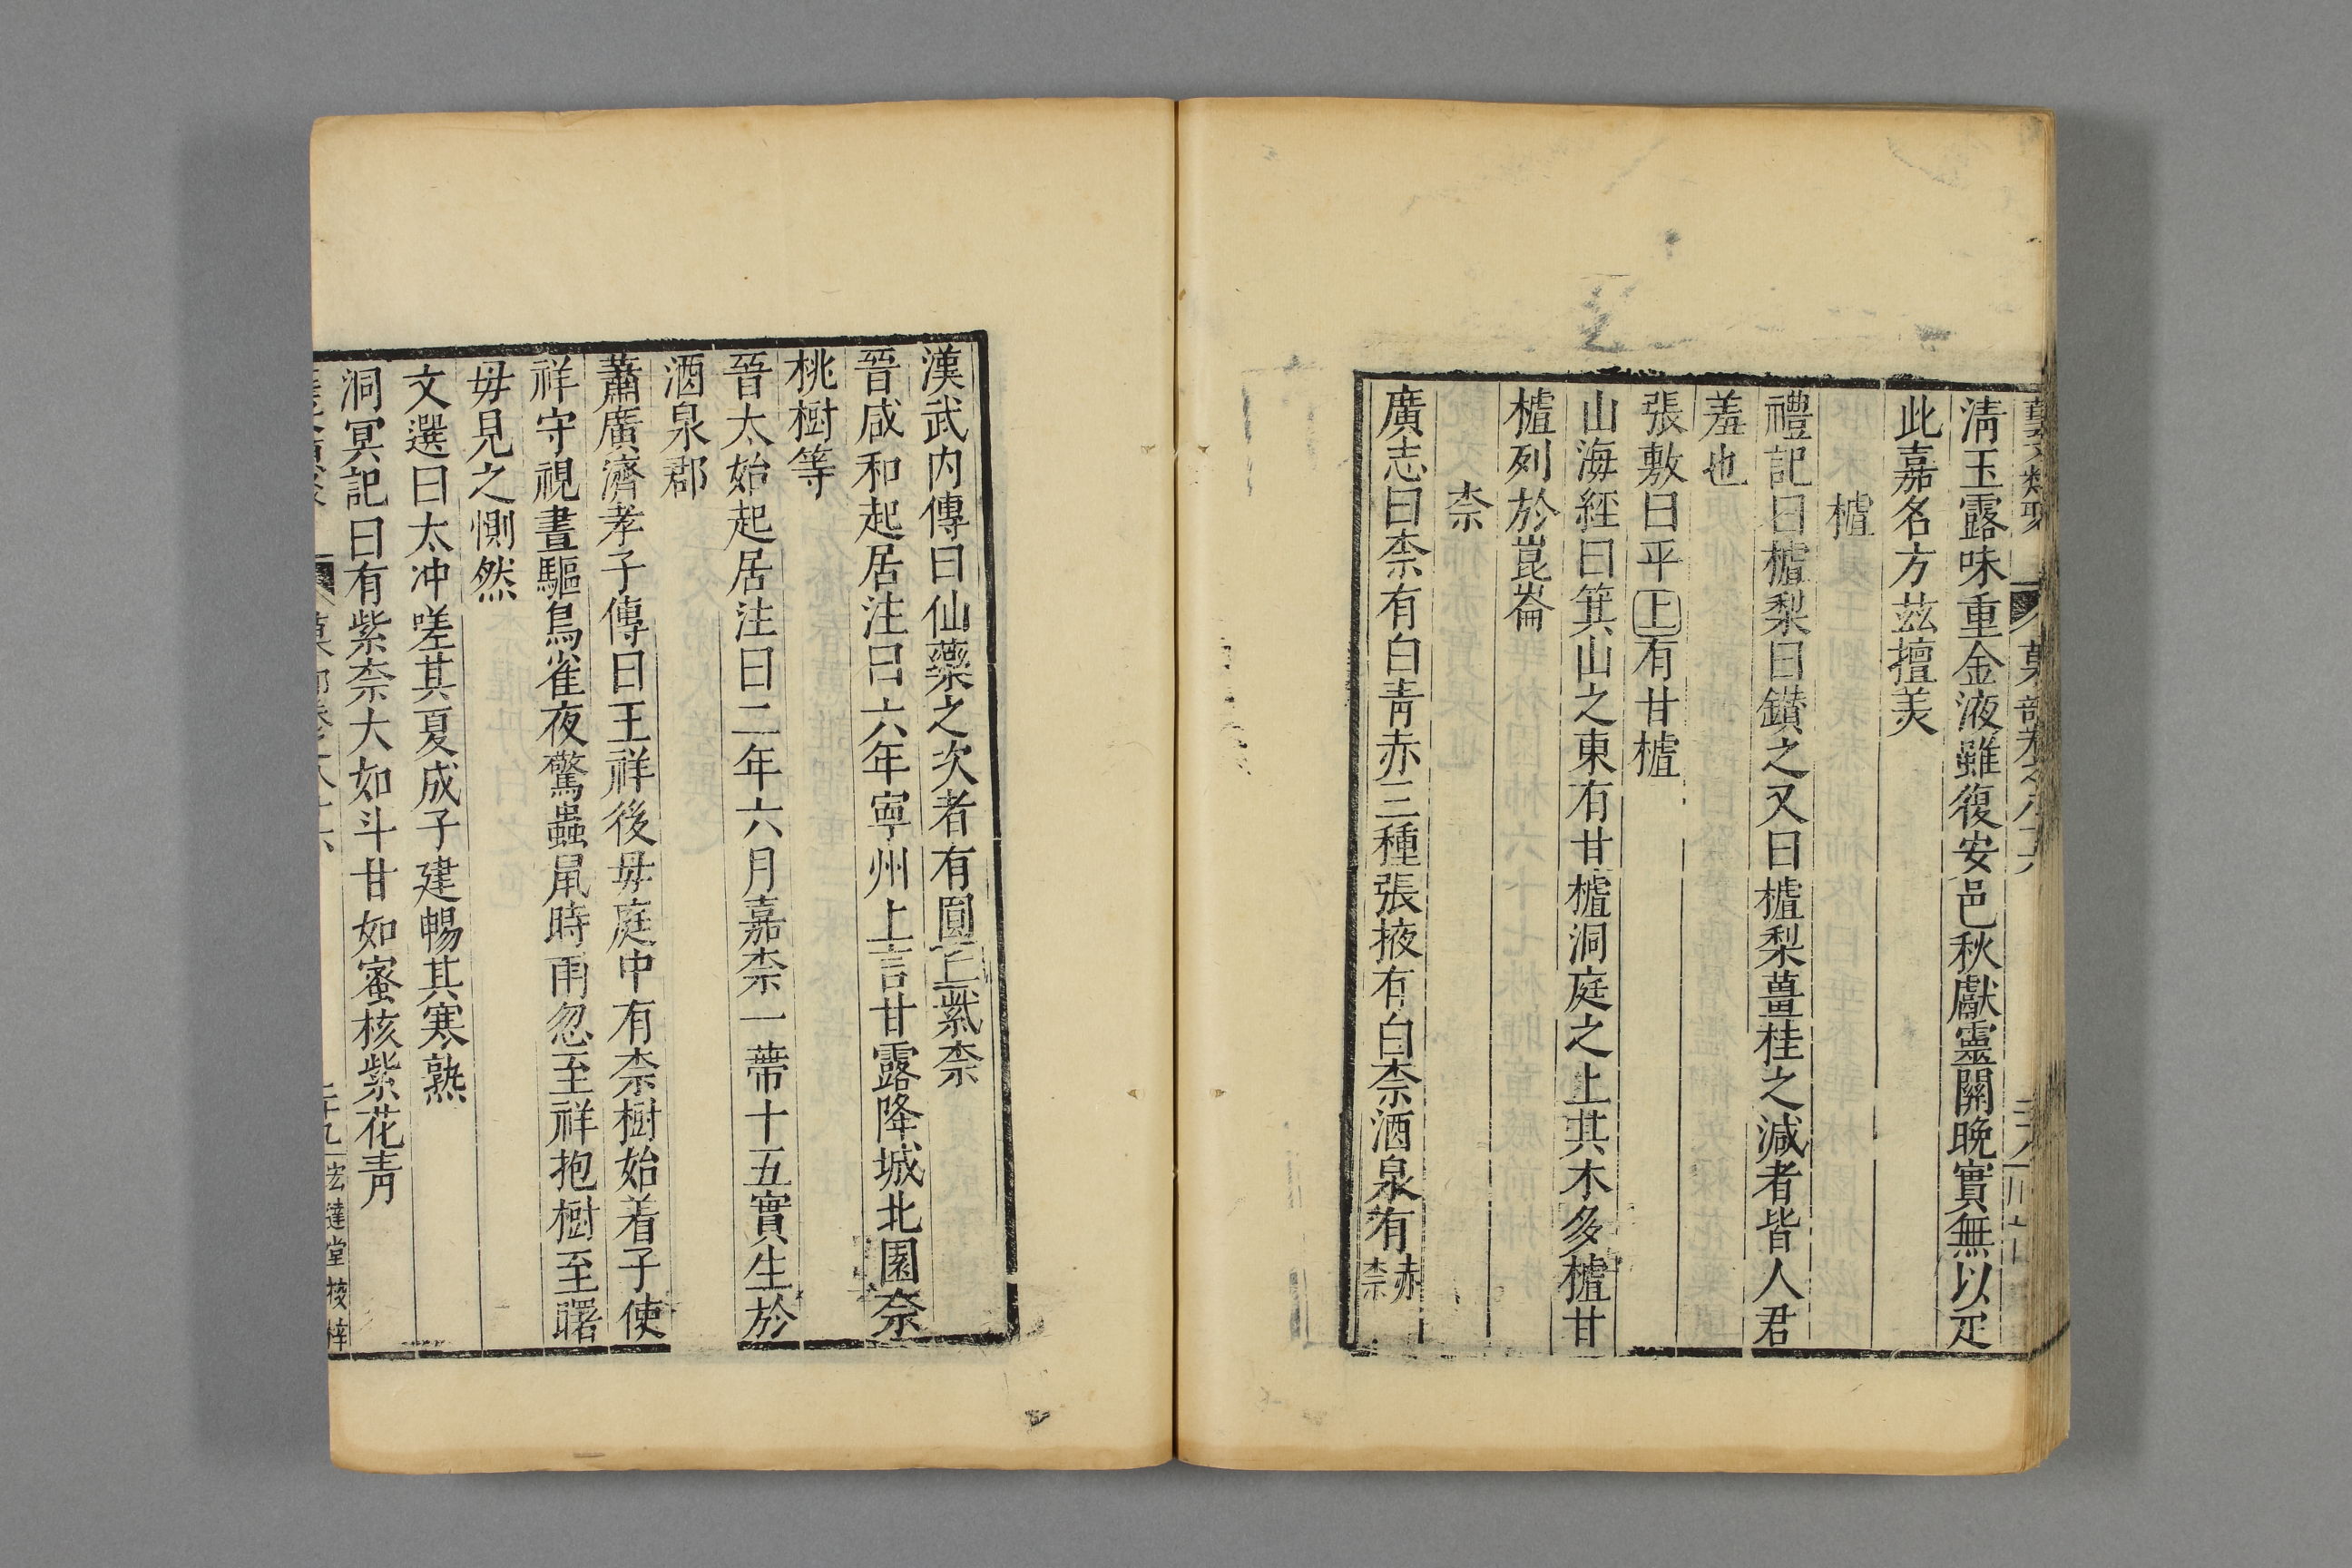 藝文類聚 菓部卷八十六
淸玉露味重金液雖復安邑秋獻靈關晚實無以疋
此嘉名方茲擅美
樝
禮記曰樝梨曰鑚之又曰樝梨薑桂之減者皆人君
羞也
張敷曰平上有甘樝
山海經曰箕山之東有甘樝洞庭之上其木多樝甘
樝列於崑崙
柰
廣志曰柰有白靑赤三種張掖有白柰酒泉有赤柰
漢武内傳曰仙藥之次者有圓上紫柰
晉咸和起居注曰六年寧州上言甘露降城北園柰
桃樹等
晉太始起居注曰二年六月嘉柰一蔕十五實生於
酒泉郡
蕭廣濟孝子傳曰王祥後母庭中有柰樹始着子使
祥守視晝驅鳥雀夜驚蟲鼠時雨忽至祥抱樹至曙
母見之惻然
文選曰太冲嗟其夏成子建暢其寒熟
洞冥記曰有紫柰大如斗甘如蜜核紫花靑
菓部卷八十六 二十九 宏達堂校梓